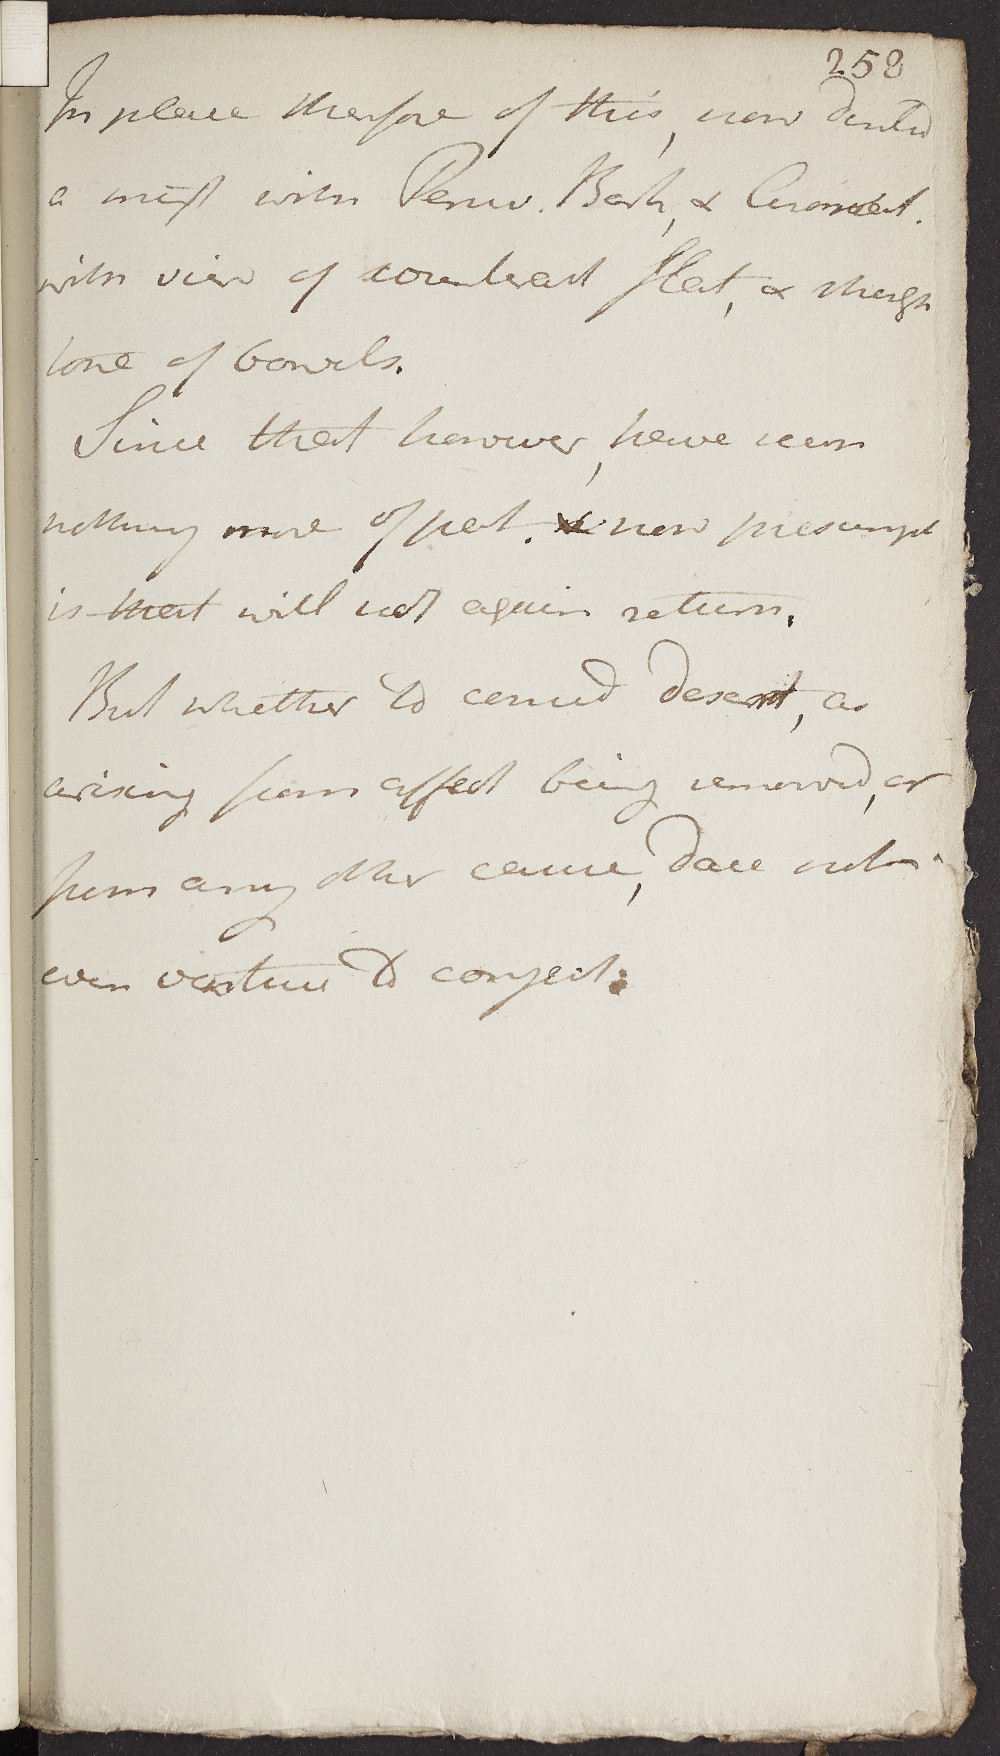 258
In place therfore of this, now direcťd
a mixt with Peruv. Bark, & Aromat.
with view of counteract flat, & strength
tone of bowels.
Since that however, have seen
nothing more of pat. & now presumpt
is that will not again return.
But whether to consid desert, as
arising from affect being removed, or
from any other cause, dare not
even venture to conject: